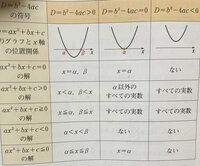 D=b²-4ac の符号
D=b²-4ac>0
D=b²-4ac=0
D=b²-4ac<0
y=ax²+bx+c のグラフと x 軸の位置関係
α β x
α x
x
ax²+bx+c=0 の解
x=α, β
x=α
ない
ax²+bx+c>0 の解
x<α, β<x
α 以外のすべての実数
すべての実数
ax²+bx+c≧0 の解
x≦α, β≦x
すべての実数
すべての実数
ax²+bx+c<0 の解
α<x<β
ない
ない
ax²+bx+c≦0 の解
α≦x≦β
x=α
ない